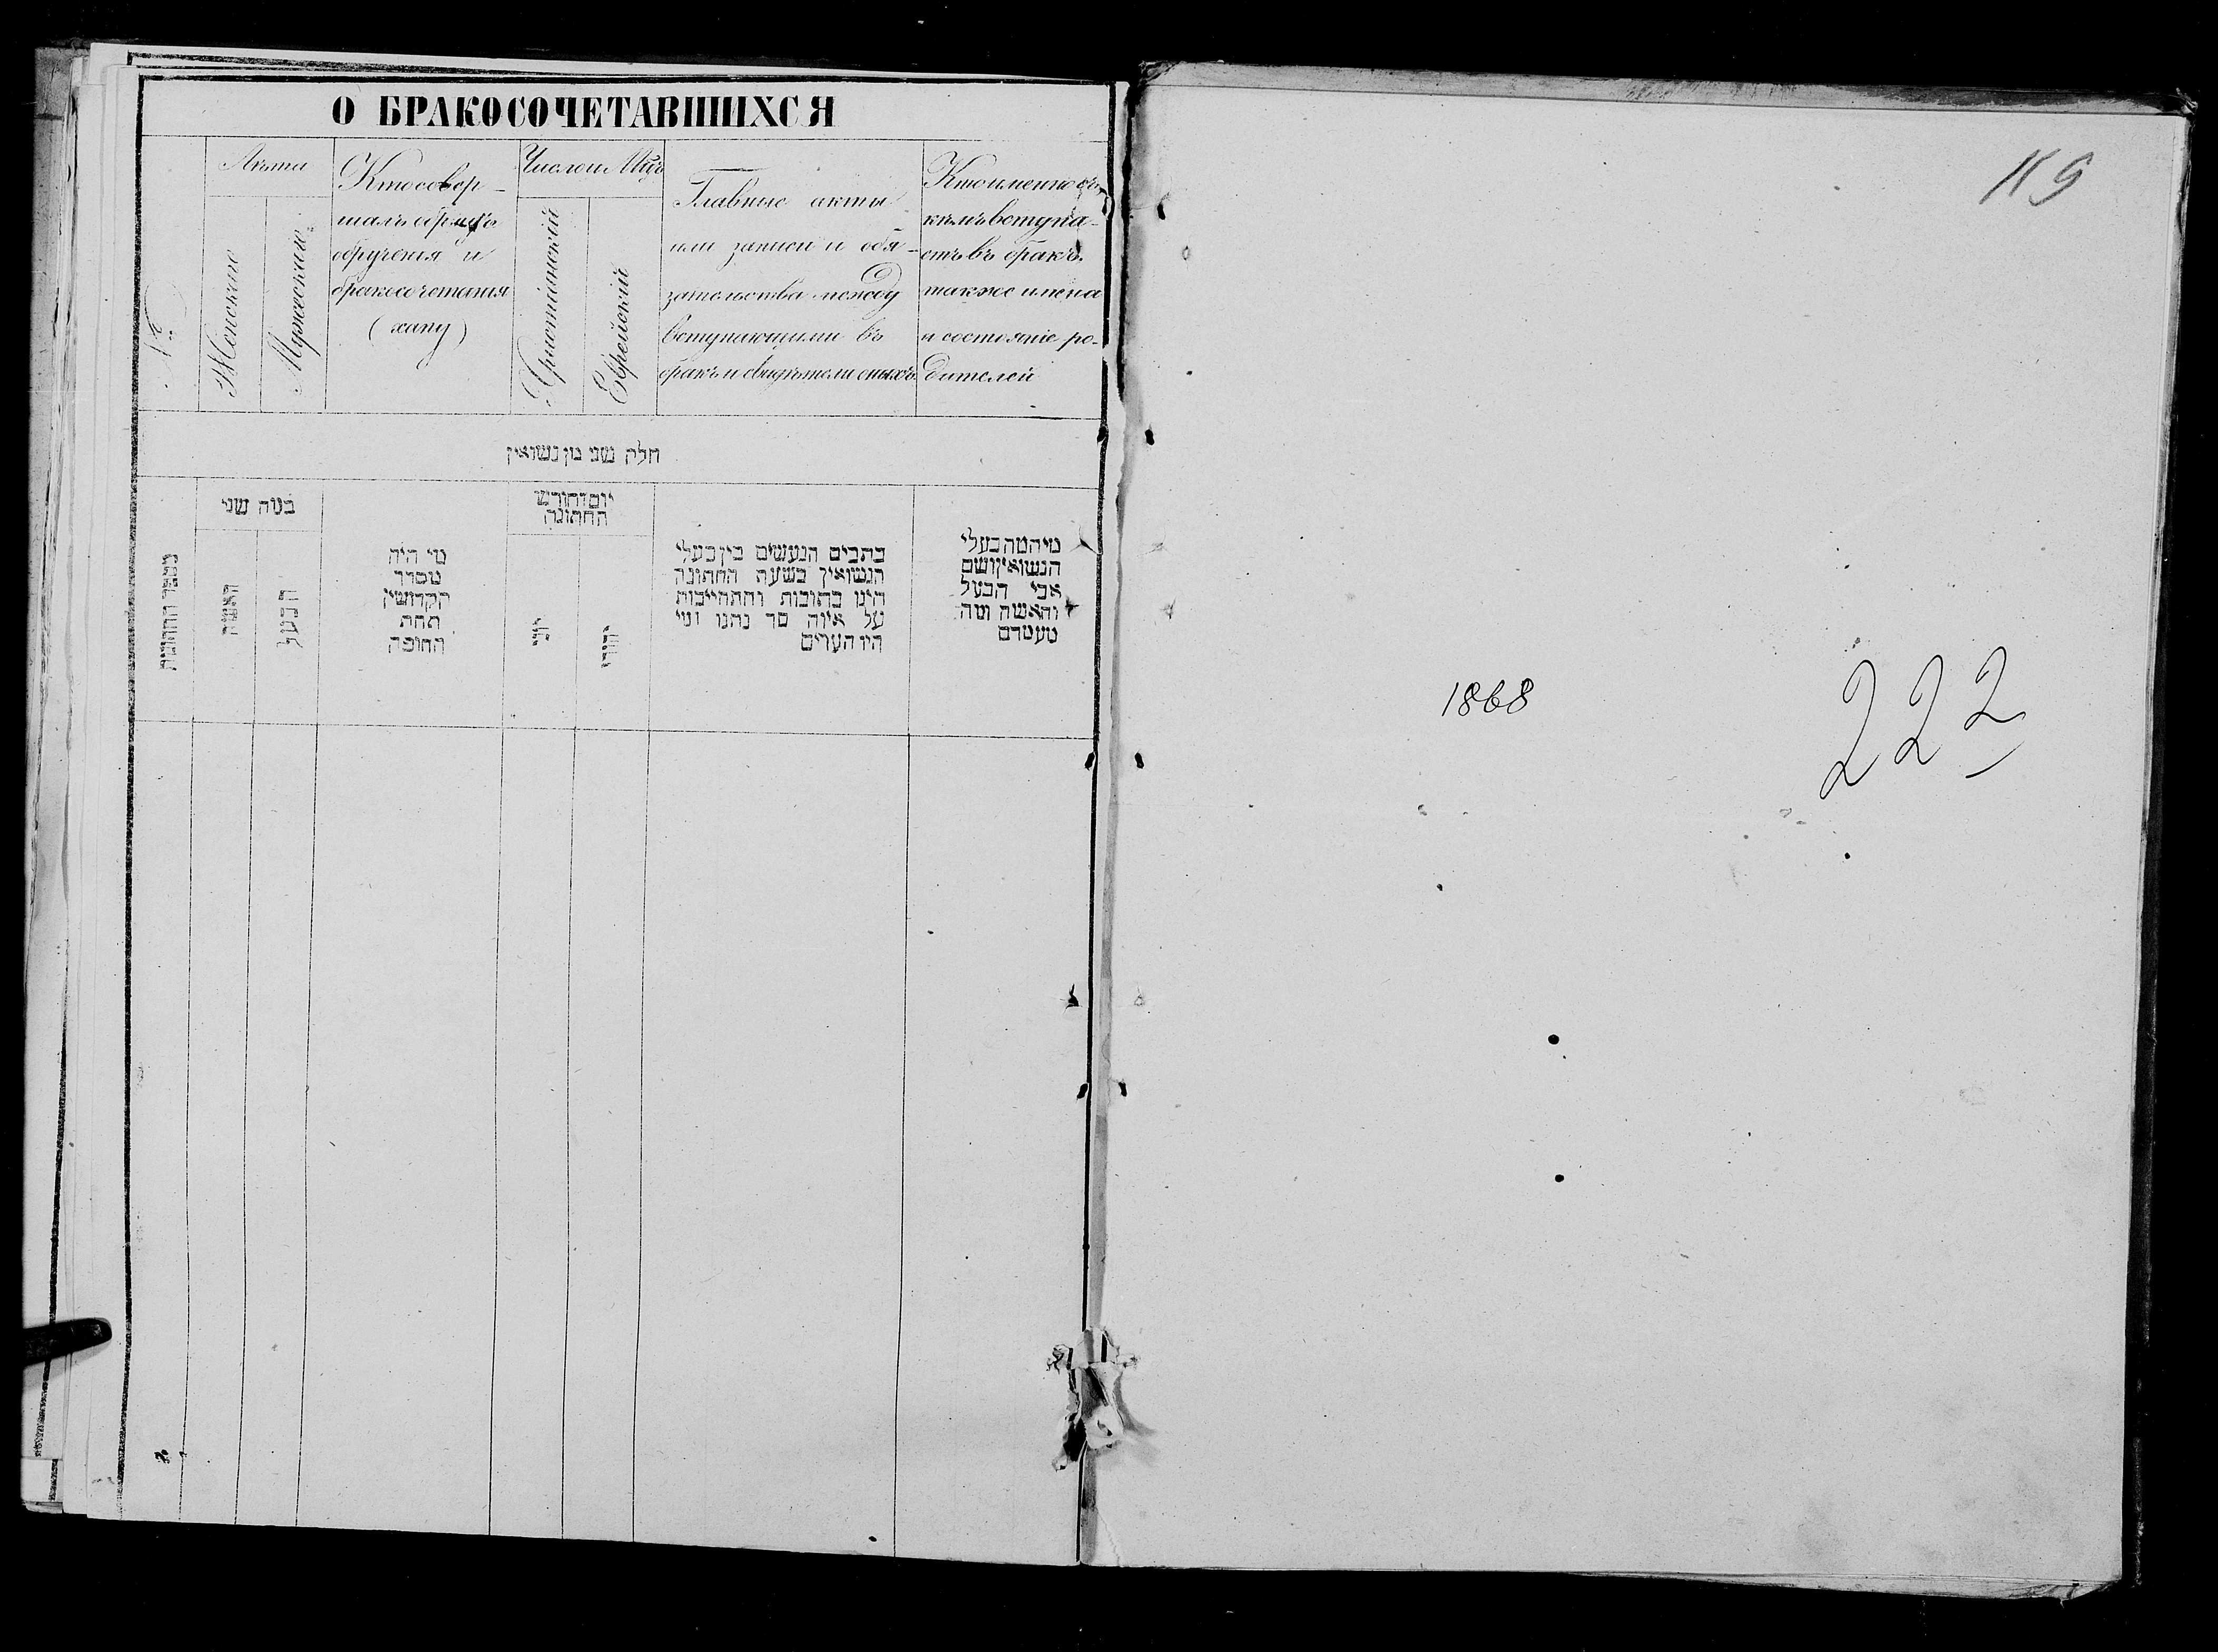 О БРАКОСОЧЕТАВШИХСЯ
№
Лѣта
Женскаго
Мужескаго
Кто совер-
шалъ обрядъ
обрученія и
бракосочетанія
(хапу)
Число и Мцъ
Христіянскій
Еврейскій
Главные акты
или записи и обя-
зательства между
вступающими въ
бракъ и свидѣтели оныхъ
Кто именно съ
кѣмъ вступа-
етъ въ бракъ.
также имена
и состояніе ро-
дителей
חלק שני מן נשואין
מספר החתונות
כמה שני
האשה
הבעל
מי היה
מסדר
הקדושין
תחת
החופה
יום וחודש
החתונה
יהודי
כתבים הנעשים בין בעלי
הנשואין בשעת החתונה
היינו כתובות והתחייבות
על איזה סך נתנו ומי
היו העדים
מיהמה בעלי
הנשואין ושם
אבי הבעל
והאשה ומה
מעמדם
119
1868
222